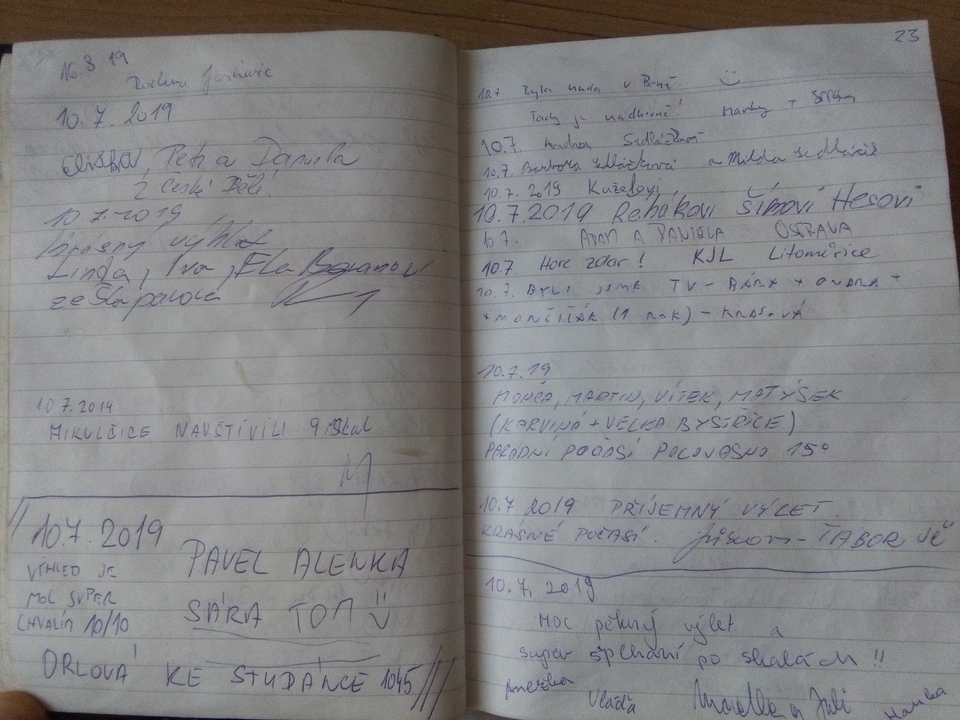 16.8 19
Rodina
10.7.2019
Petr a Daniela
z České Bělé!
10.7.2019
krásný výhled
Linda, Iva, Ela
ze Štěpánova
10.7.2019
MIKULČICE NAVŠTÍVILI 9 skal
10.7.2019
VÝHLED JE
MOC SUPER
CHVALÍM 10/10
PAVEL ALENKA
SÁRA TOM
ORLOVÁ KE STUDÁNCE 1045
23
10.7 Byla nuda v Brně
Tady je nádherně! +
10.7.
10.7. Barbora Sedláčková a Milda Sedláček
10.7.2019 Kuželovi,
10.7.2019 Řehákovi Šímovi Hesovi
10.7. ADAM A DANIELA OSTRAVA
10.7 Hore zdar! KJL Litoměřice
10.7. BYLI JSME TU - BÁRA + ONDRA +
+ (1 ROK) - KRASOVÁ
10.7.19
MONČA, MARTIN, VÍTEK, MATÝSEK
(KARVINÁ + VELKÁ BYSTŘICE)
PARÁDNÍ POČASÍ POLOJASNO 15°
10.7 2019 PŘÍJEMNÝ VÝLET.
KRÁSNÉ POČASÍ. - TÁBOR JČ
10.7.2019
MOC pěkný výlet a
super šplhání po skalách!!
Anežka
Vláďa a Jiří Hanka